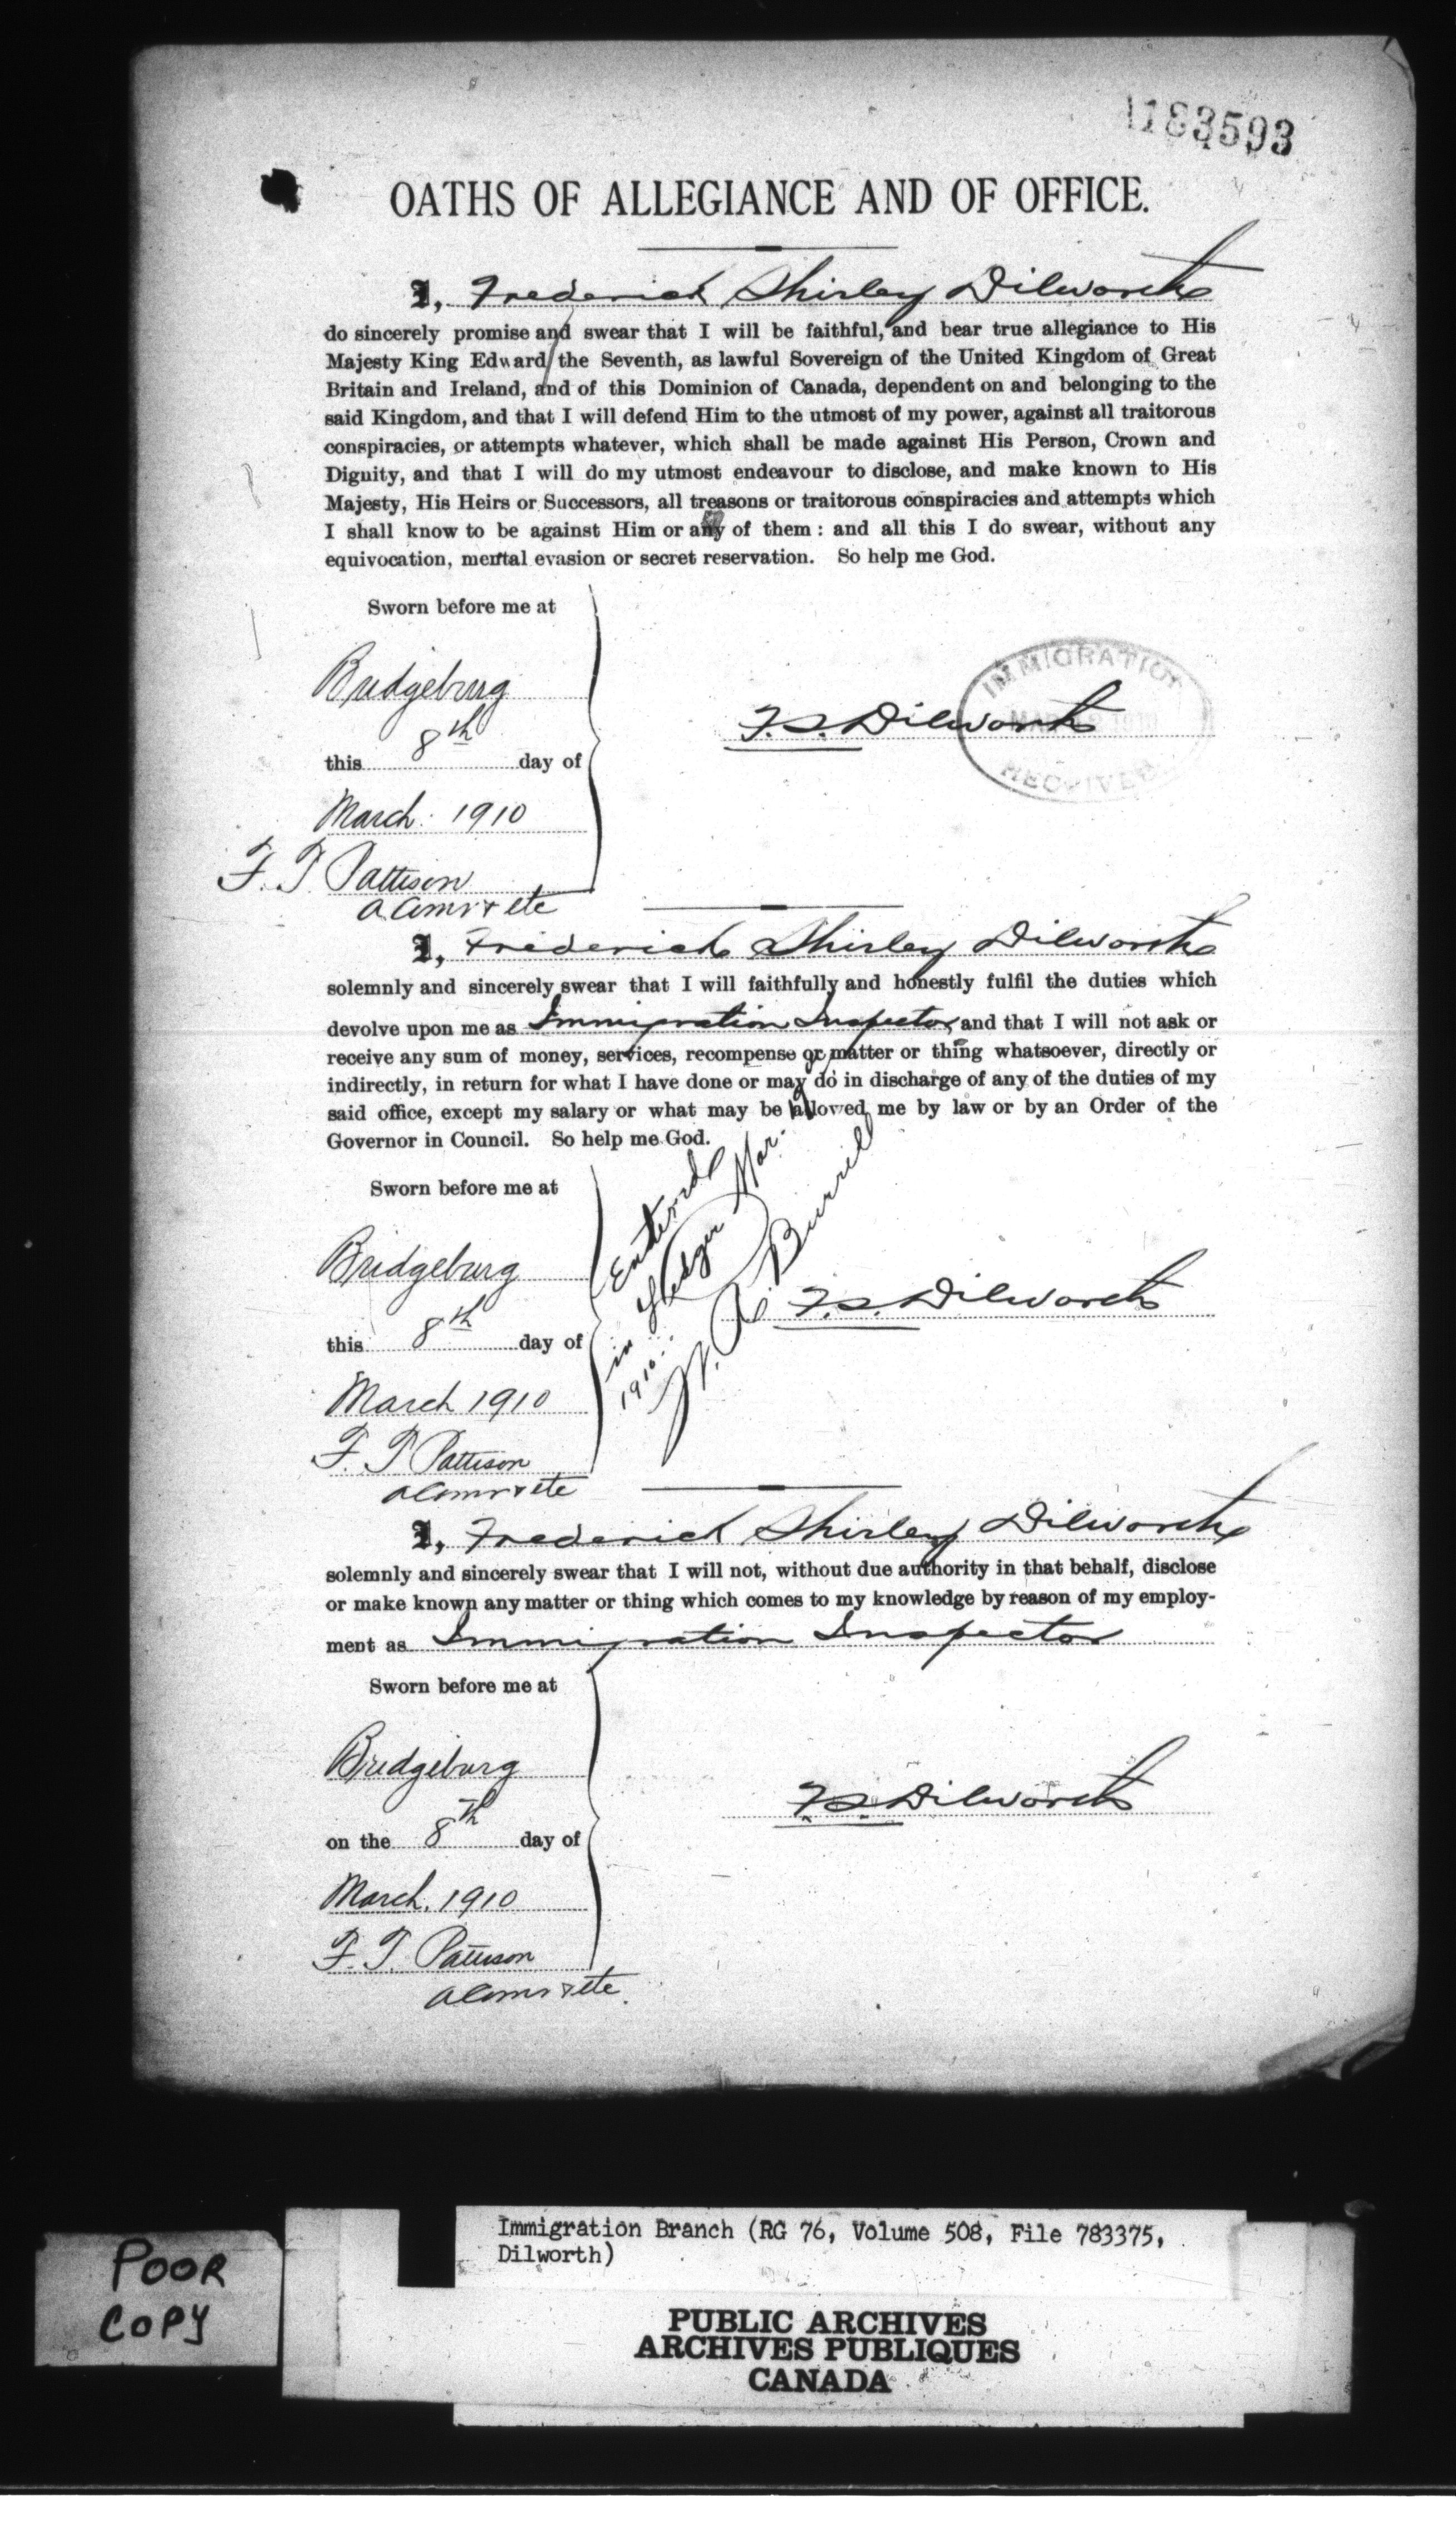 1183593
OATHS OF ALLEGIANCE AND OF OFFICE.
I, Frederick Shirley Dilworth
do sincerely promise and swear that I will be faithful, and bear true allegiance to His
Majesty King Edward the Seventh, as lawful Sovereign of the United Kingdom of Great
Britain and Ireland, and of this Dominion of Canada, dependent on and belonging to the
said Kingdom, and that I will defend Him to the utmost of my power, against all traitorous
conspiracies, or attempts whatever, which shall be made against His Person, Crown and
Dignity, and that I will do my utmost endeavour to disclose, and make known to His
Majesty, His Heirs or Successors, all treasons or traitorous conspiracies and attempts which
I shall know to be against Him or any of them : and all this I do swear, without any
equivocation, mental evasion or secret reservation. So help me God.
Sworn before me at
Bridgeburg
this 8th day of
March. 1910
F. T. Pattison
a Comr & etc
F.S. Dilworth
IMMIGRATION
1910
RECEIVED
I, Frederick Shirley Dilworth
solemnly and sincerely swear that I will faithfully and honestly fulfil the duties which
devolve upon me as Immigration Inspector and that I will not ask or
receive any sum of money, services, recompense or matter or thing whatsoever, directly or
indirectly, in return for what I have done or may do in discharge of any of the duties of my
said office, except my salary or what may be allowed me by law or by an Order of the
Governor in Council. So help me God.
Sworn before me at
Bridgeburg
this 8th day of
March 1910
F. T. Pattison
a Comr & etc
Entered
in Ledger Mar.
1910.
Burrell
F.S. Dilworth
I, Frederick Shirley Dilworth
solemnly and sincerely swear that I will not, without due authority in that behalf, disclose
or make known any matter or thing which comes to my knowledge by reason of my employ-
ment as Immigration Inspector
Sworn before me at
Bridgeburg
on the 8th day of
March. 1910
F. T. Pattison
a Comr & etc.
F.S. Dilworth
POOR
COPY
Immigration Branch (RG 76, Volume 508, File 783375,
Dilworth)
PUBLIC ARCHIVES
ARCHIVES PUBLIQUES
CANADA